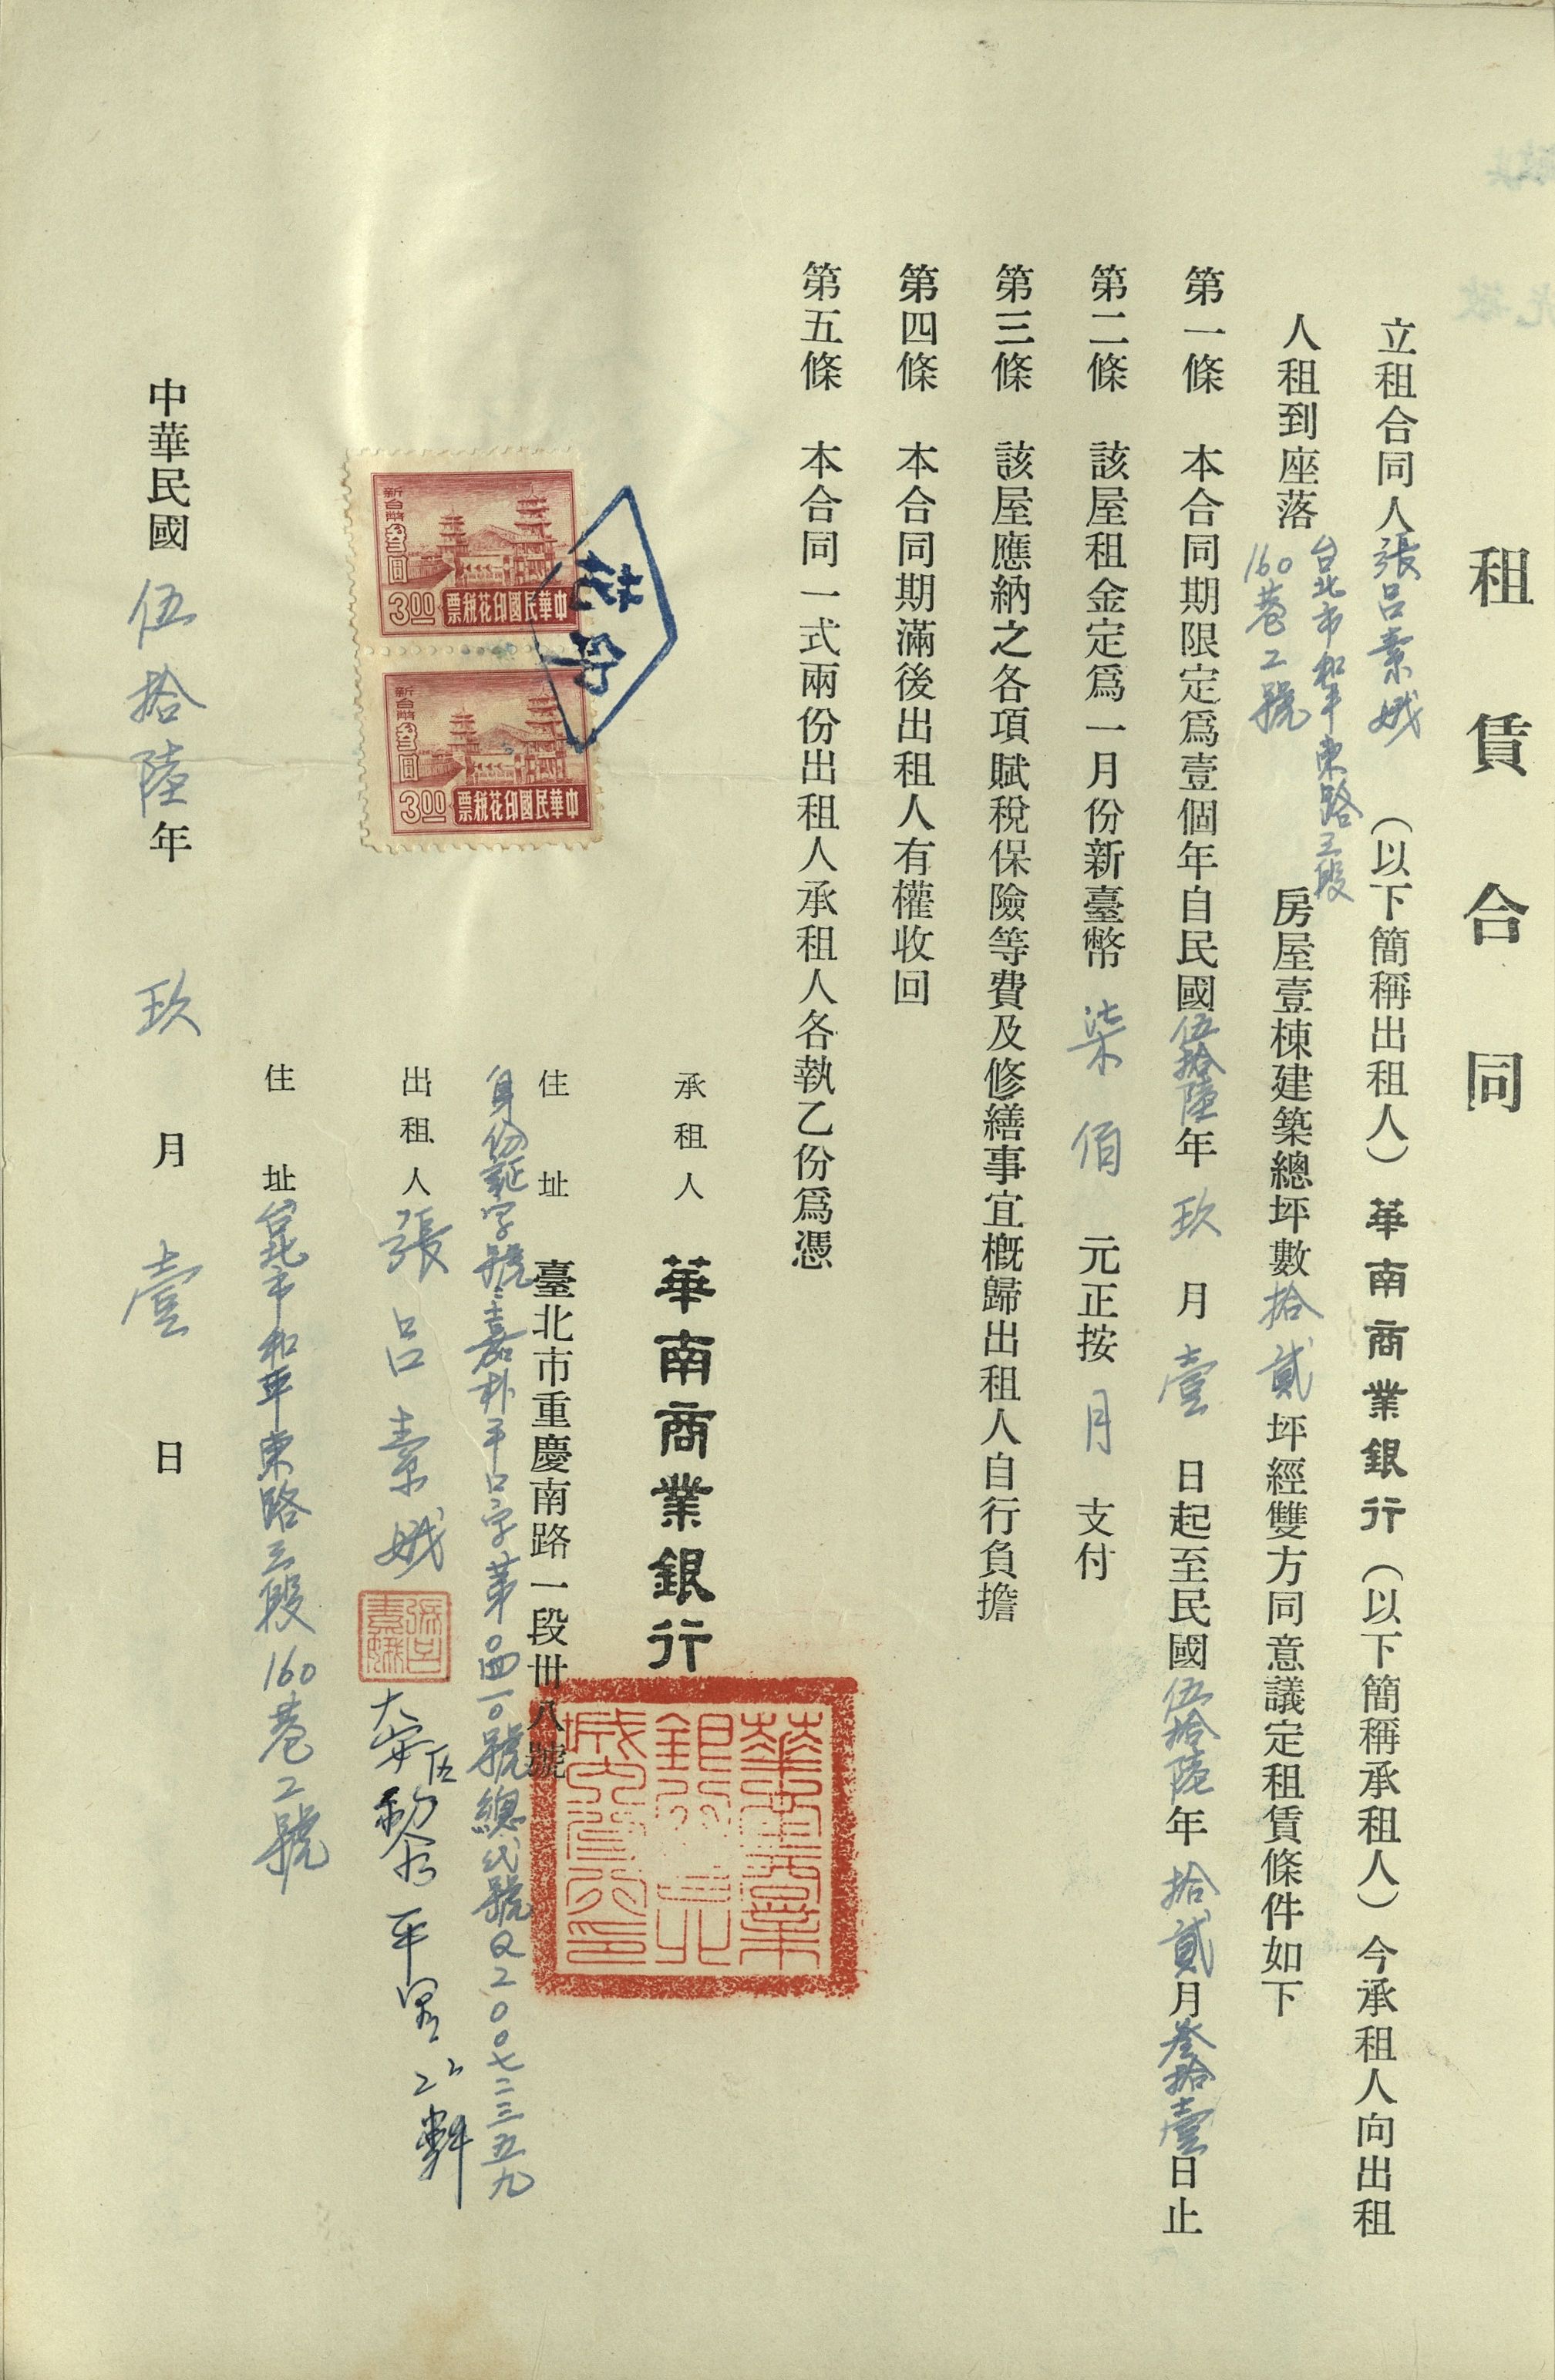 租賃合同
立租合同人張呂素娥（以下簡稱出租人）華南商業銀行（以下簡稱承租人）今承租人向出租
人租到座落台北市和平東路三段160巷2號房屋壹棟建築總坪數拾貳坪經雙方同意議定租賃條件如下
第一條 本合同期限定爲壹個年自民國伍拾陸年玖月壹日起至民國伍拾陸年拾貳月叁拾壹日止
第二條 該屋租金定爲一月份新臺幣柒佰元正按月支付
第三條 該屋應納之各項賦稅保險等費及修繕事宜概歸出租人自行負擔
第四條 本合同期滿後出租人有權收回
第五條 本合同一式兩份出租人承租人各執乙份爲憑
承租人 華南商業銀行
住址 臺北市重慶南路一段卅八號
身份証字號：嘉朴平口字第0四一0號總代號Q200七二三五九
出租人 張呂素娥
張呂素娥
住址 台北市和平東路三段160巷2號
新台幣叁圓
3.00
中華民國印花稅票
新台幣叁圓
3.00
中華民國印花稅票
中華民國伍拾陸年玖月壹日